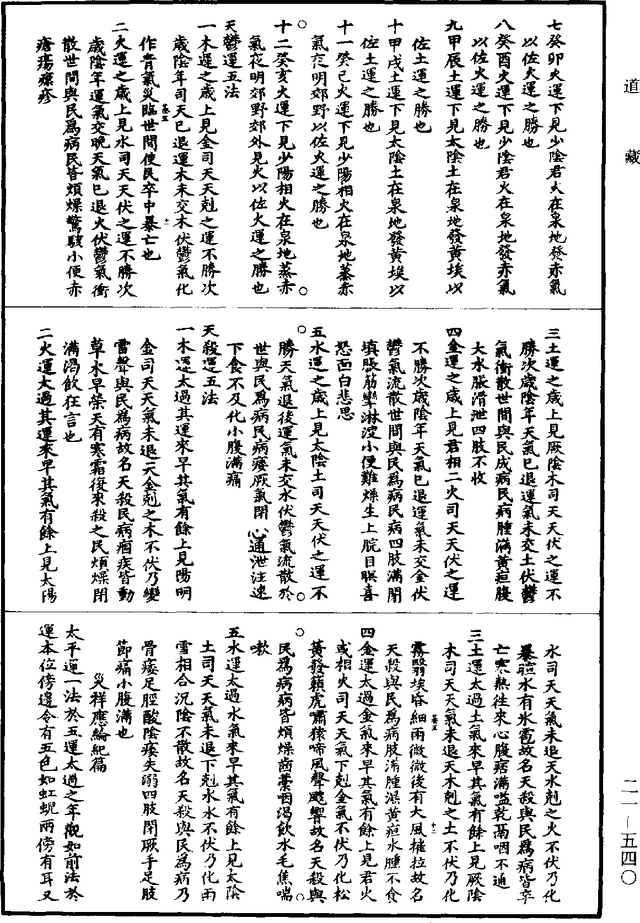 道藏
七癸卯火運下見少陰君火在泉地發赤氣
以佐火運之勝也
八癸酉火運下見少陰君火在泉地發赤氣
以佐火運之勝也
九甲辰土運下見太陰土在泉地發黃埃以
佐土運之勝也
十甲戌土運下見太陰土在泉地發黃埃以
佐土運之勝也
十一癸巳火運下見少陽相火在泉地蒸赤
氣夜明郊野以佐火運之勝也
十二癸亥火運下見少陽相火在泉地蒸赤
氣夜明郊野郊外見火以佐火運之勝也
天鬱運五法
一木運之歲上見金司天天剋之運不勝次
歲陰年司天已退運木未交木伏鬱氣化
作青氣災臨世間使民卒中暴亡也
二火運之歲上見水司天天伏之運不勝次
歲陰年運氣交晚天氣已退火伏鬱氣衝
散世間與民為病民皆煩燥驚駭小便赤
瘡瘍㿋疹
三土運之歲上見厥陰木司天天伏之運不
勝次歲陰年天氣已退運氣未交土伏鬱
氣衝散世間與民成病民病腫滿黃疸腹
大水脹滑泄四肢不收
四金運之歲上見君相二火司天天伏之運
不勝次歲陰年天氣已退運氣未交金伏
鬱氣流散世間與民為病民病四肢滿悶
䐜脹筋攣淋澁小便難燥生上脘目瞑喜
恐面白悲思
五水運之歲上見太陰土司天天伏之運不
勝天氣退後運氣未交水伏鬱氣流散於
世與民為病民病痿厥氣閉心通泄注遠
下食不及化小腹滿痛
天殺運五法
一木運太過其運來早其氣有餘上見陽明
金司天天氣未退天金剋之木不伏乃變
雷聲與民為病故名天殺民病痼疾皆動
草木早榮天有寒霜後來殺之民煩燥悶
滿渴飲狂言也
二火運太過其運來早其氣有餘上見太陽
水司天天氣未退天水剋之火不伏乃化
暴暄水有氷雹故名天殺與民為病皆卒
亡寒熱往來心腹痞滿嗌乾咽不通
三土運太過土氣來早其氣有餘上見厥陰
木司天天氣未退天木剋之土不伏乃化
霧翳埃昏細雨微微後有大風摧拉故名
天殺與民為病肢滿腫濕黃疸水腫不食
四金運太過金氣來早其氣有餘上見君火
或相火司天天氣下剋金氣不伏乃化松
篁發籟虎嘯猿啼風聲颼響故名天殺與
民為病病皆煩燥齒藁咽渴飲水毛焦喘
嗽
五水運太過水氣來早其氣有餘上見太陰
土司天天氣未退下剋水水不伏乃化雨
雪相合沉陰不散故名天殺與民為病乃
骨痿足脛酸陰痿失溺四肢閉厥手足肢
節痛小腹滿也
災祥應綸紀篇
太平運一法於五運太過之年觀如前法於
運本位傍邊令有五色如虹蜺兩傍有耳又
二一—五四〇